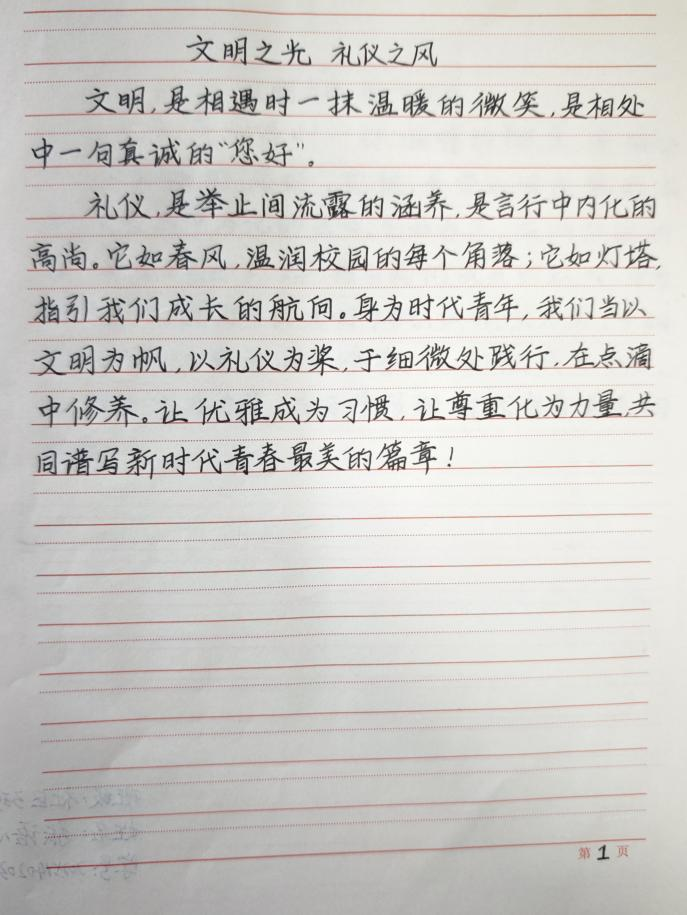 文明之光 礼仪之风
文明,是相遇时一抹温暖的微笑,是相处
中一句真诚的“您好”。
礼仪,是举止间流露的涵养,是言行中内化的
高尚。它如春风,温润校园的每个角落;它如灯塔,
指引我们成长的航向。身为时代青年,我们当以
文明为帆,以礼仪为桨,于细微处践行,在点滴
中修养。让优雅成为习惯,让尊重化为力量,共
同谱写新时代青春最美的篇章!
第 1 页